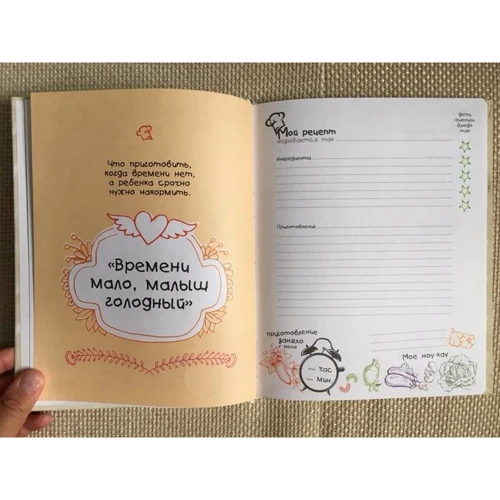 Что приготовить,
когда времени нет,
а ребенка срочно
нужно накормить.
«Времени
мало, малыш
голодный»
Мой рецепт
называется так
Ингредиенты
Приготовление
дети
оценили
блюдо
так
приготовление
заняло
у меня
— час
— мин
Мое ноу-хау